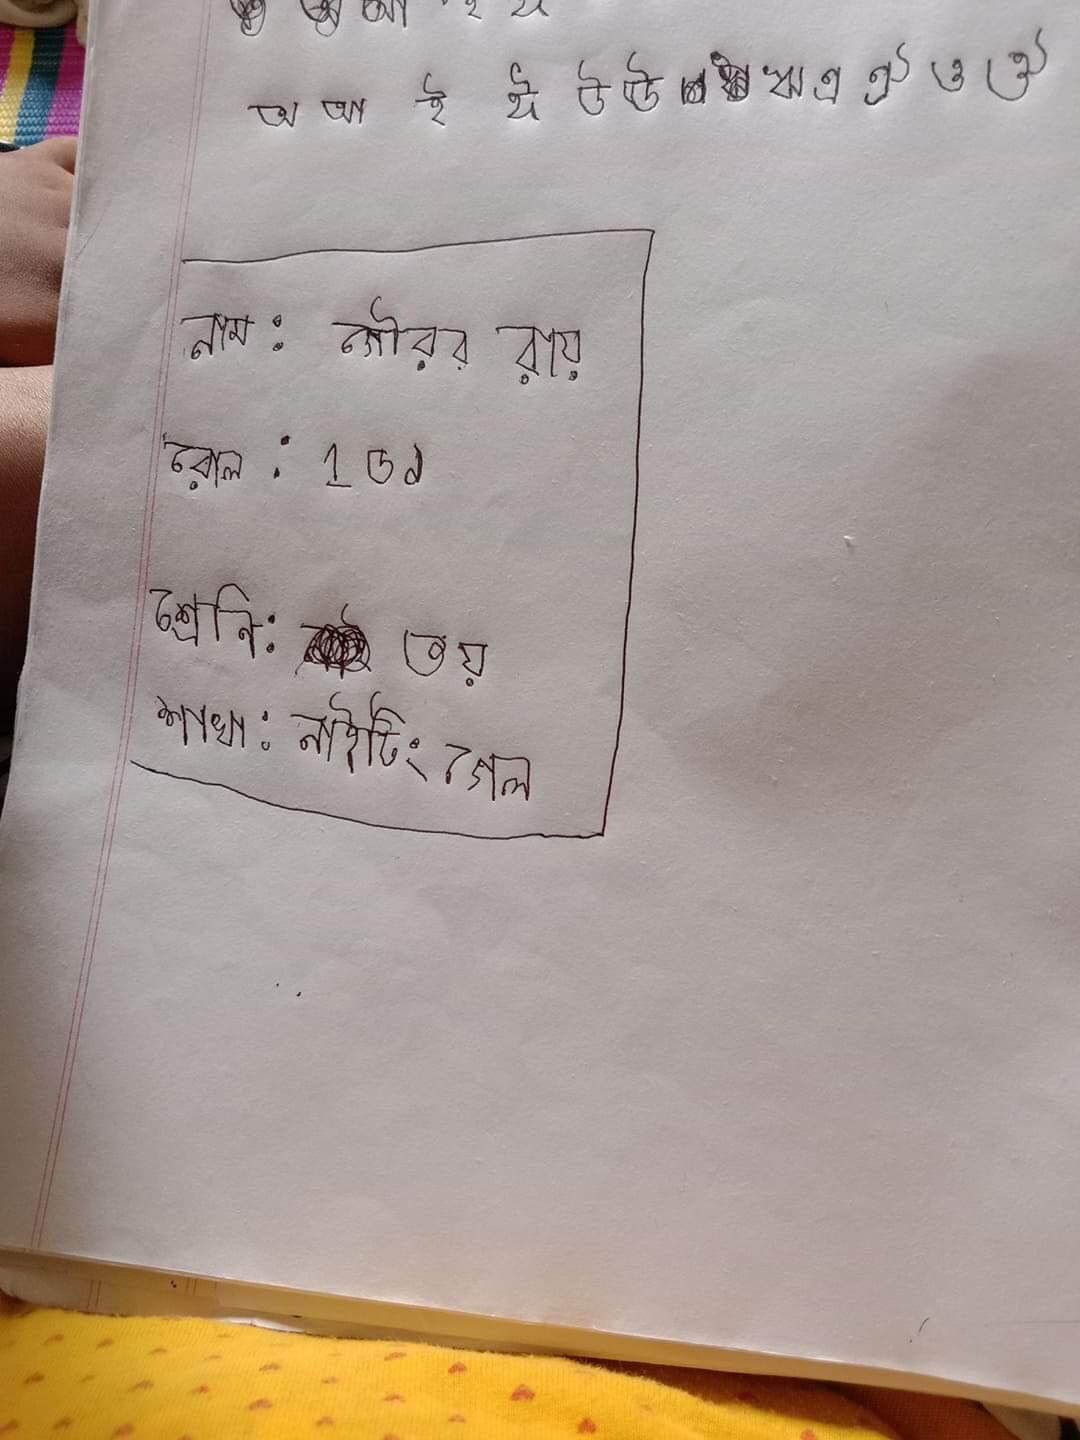 আ ই ঈ
অ আ ই ঈ উ ঊ ঋ এ ঐ ও ঔ
নাম: সৌরব রায়
রোল: 1৩৯
শ্রেনি: ৩য়
শাখা: নাইটিংগেল